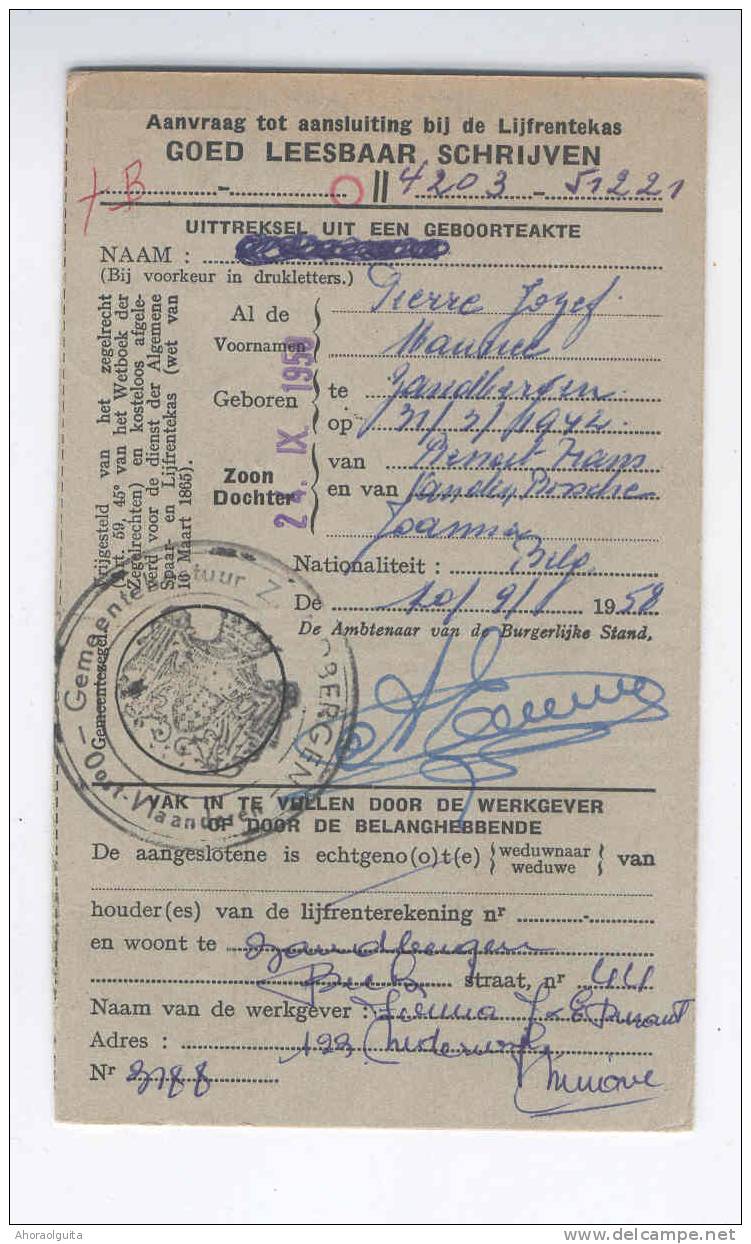 Aanvraag tot aansluiting bij de Lijfrentekas
GOED LEESBAAR SCHRIJVEN
+B - O || 4203 - 51221
UITTREKSEL UIT EEN GEBOORTEAKTE
NAAM :
(Bij voorkeur in drukletters.)
Al de Voornamen Pierre Jozef
Maurice
Geboren te Zandbergen
op 31/3/1942
Zoon Dochter van Benoit Frans
en van Vanden Bossche
Joanna
Nationaliteit : Belg
De 10/9/ 1958
De Ambtenaar van de Burgerlijke Stand,
24. IX. 1958
Vrijgesteld van het zegelrecht
(Art. 59, 45° van het Wetboek der
Zegelrechten) en kosteloos afgele-
werd voor de dienst der Algemene
Spaar- en Lijfrentekas (wet van
16 Maart 1865).
Gemeentezegel.
Gemeentebestuur Z BERGEN
Oost-Vlaanderen
VAK IN TE VULLEN DOOR DE WERKGEVER
OF DOOR DE BELANGHEBBENDE
De aangeslotene is echtgeno(o)t(e) weduwnaar weduwe van
houder(es) van de lijfrenterekening nr -
en woont te Zandbergen
straat, nr 44
Naam van de werkgever : Firma
Adres : 122
Ninove
Nr 3188
Ahoraolguita
delcampe.net